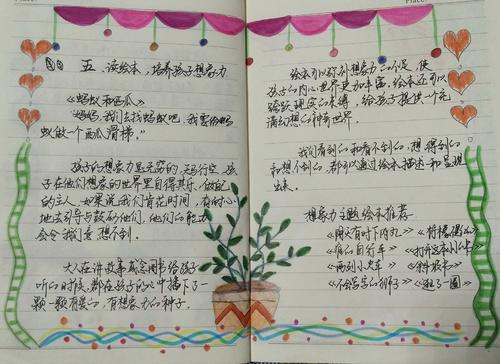 Place:
Place:
五、读绘本,培养孩子想象力
《蚂蚁和西瓜》
"妈妈,我们去找蚂蚁吧,我要给蚂
蚁做一个西瓜滑梯。"
孩子的想象力是无穷的,天马行空,孩
子在他们想象的世界里自得其乐,做自己
的主人,如果说我们肯花时间,有耐心
地去引导与鼓励他们,他们的能力
会令我们意想不到。
大人在讲故事或念图书给孩子
听的时候,都在孩子的心中播下了一
颗一颗有爱的,有想象力的种子。
绘本可以弥补想象力的不足,使
孩子的内心世界更加丰富,绘本还可以
跨越现实的束缚,给孩子提供一个充
满幻想的神奇世界。
我们看到的和看不到的,想得到的
和想不到的,都可以通过绘本描述和呈现
出来。
想象力主题绘本推荐
《阴天有时下肉丸》
《自行车》
《打开这本小书》
《两列小火车》
《不会写字的狮子》
《疯了一圈》